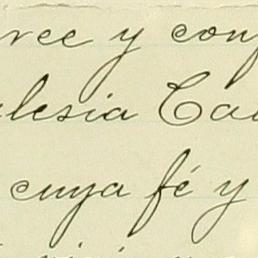 ree y conf
lesia Cat
cuya fé y